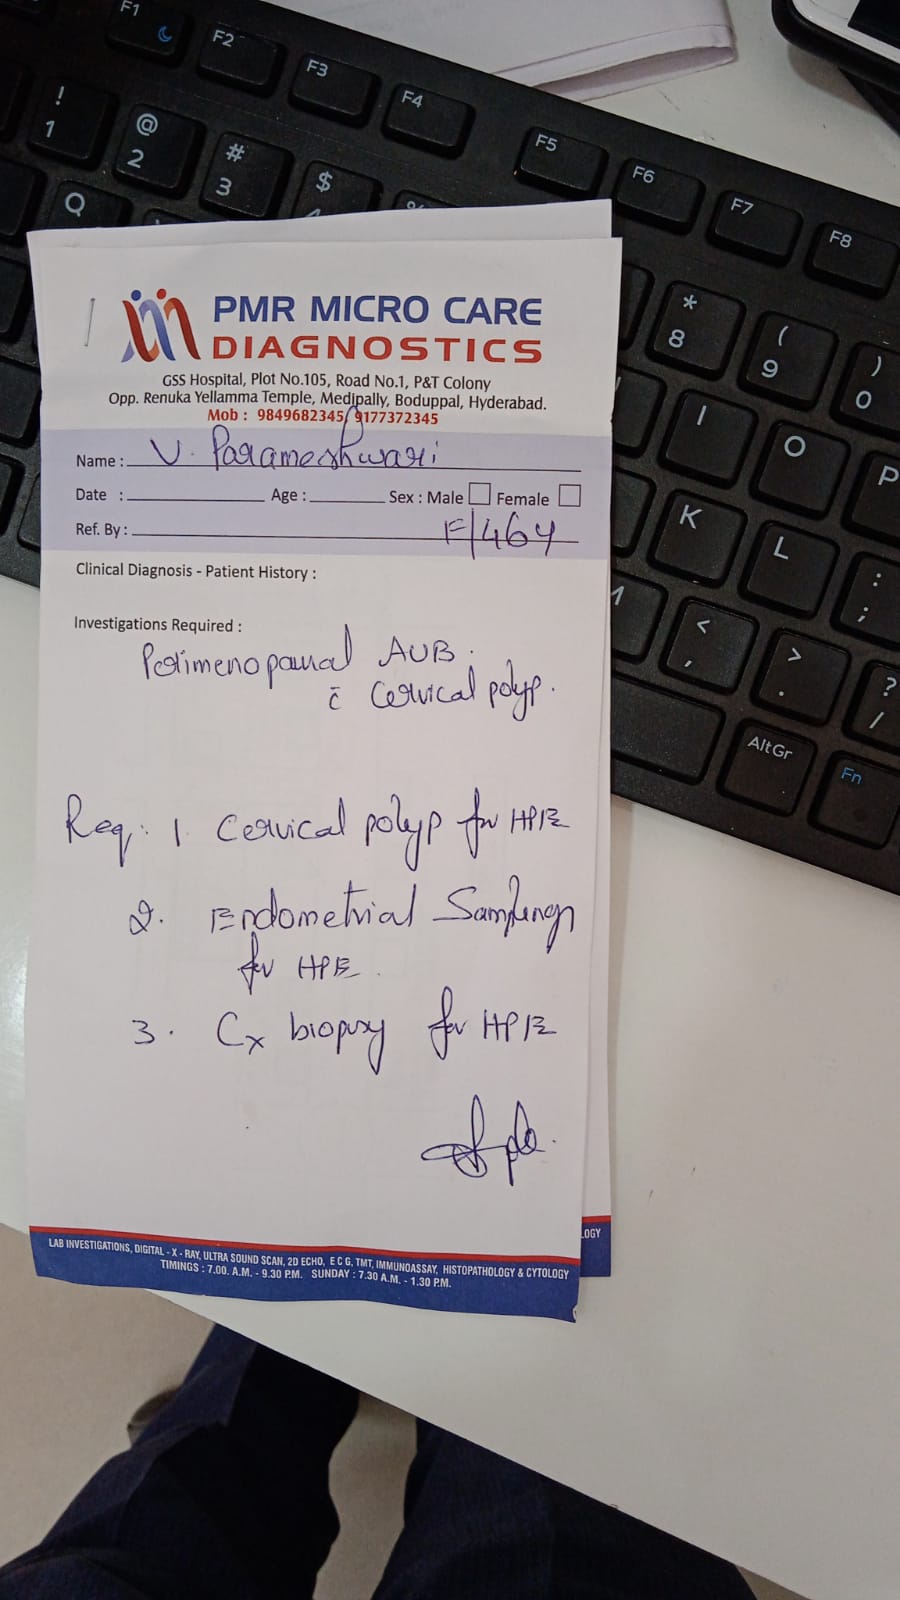 F1
F2
F3
F4
F5
F6
F7
F8
!
1
@
2
#
3
$
%
*
8
(
9
)
0
Q
I
O
P
K
L
:
;
M
<
,
>
.
?
/
AltGr
Fn
PMR MICRO CARE
DIAGNOSTICS
GSS Hospital, Plot No.105, Road No.1, P&T Colony
Opp. Renuka Yellamma Temple, Medipally, Boduppal, Hyderabad.
Mob : 9849682345/9177372345
Name : V. Parameshwari
Date : Age : Sex : Male Female
Ref. By : F/46Y
Clinical Diagnosis - Patient History :
Investigations Required :
Perimenopausal AUB.
c̄ Cervical polyp.
Req: 1. Cervical polyp for HPE
2. Endometrial Sampling
for HPE.
3. Cx biopsy for HPE
LAB INVESTIGATIONS, DIGITAL - X - RAY, ULTRA SOUND SCAN, 2D ECHO, E C G, TMT, IMMUNOASSAY, HISTOPATHOLOGY & CYTOLOGY
TIMINGS : 7.00. A.M. - 9.30 P.M. SUNDAY : 7.30 A.M. - 1.30 P.M.
LOGY